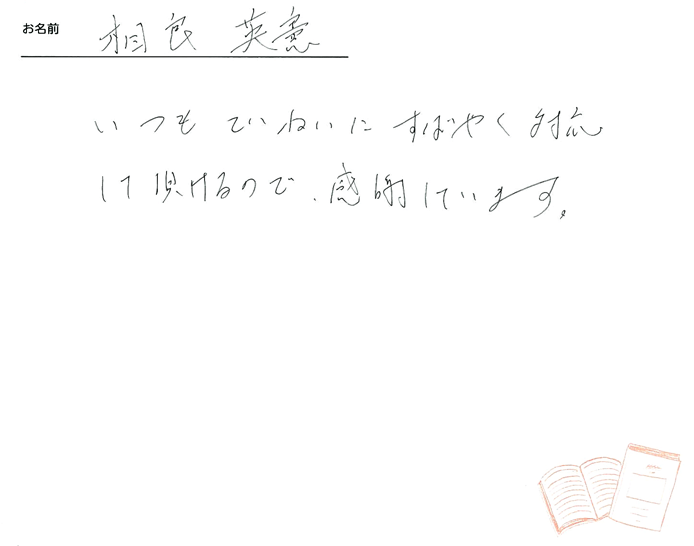 お名前 相良 英憲
いつもていねいにすばやく対応
して頂けるので、感謝しています。